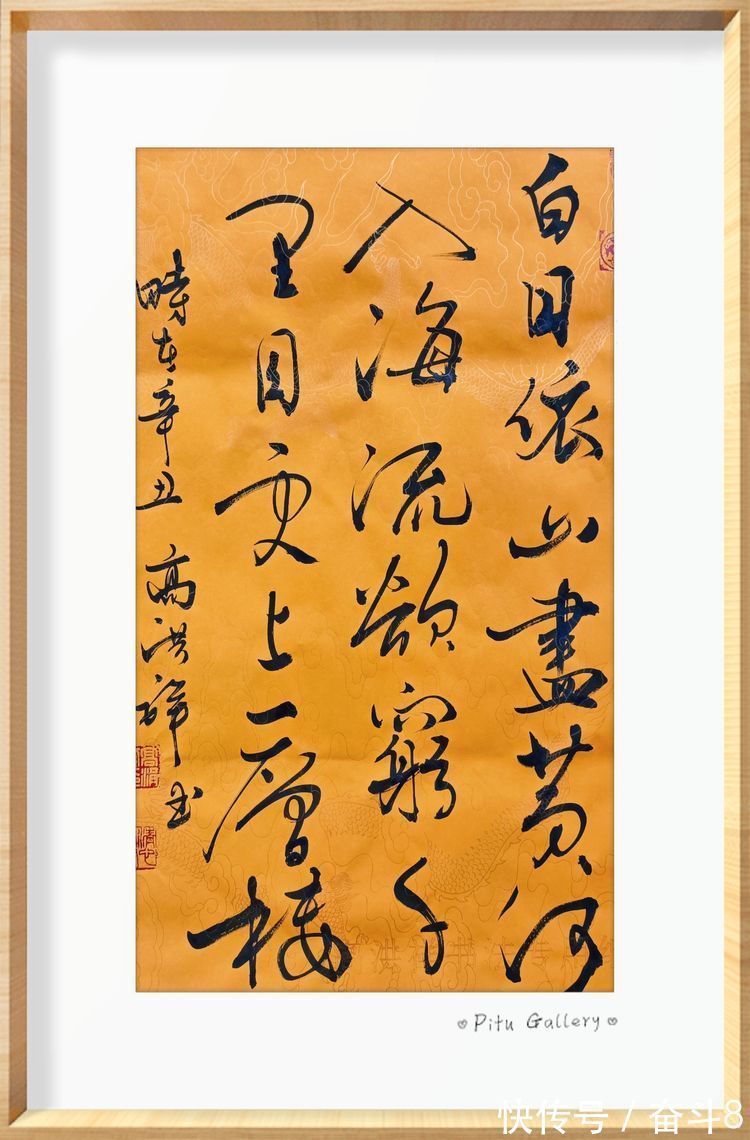 白日依山盡黃河
入海流欲窮千
里目更上一層樓
時在辛丑 高洪 书
Pitu Gallery
快传号 / 奋斗8